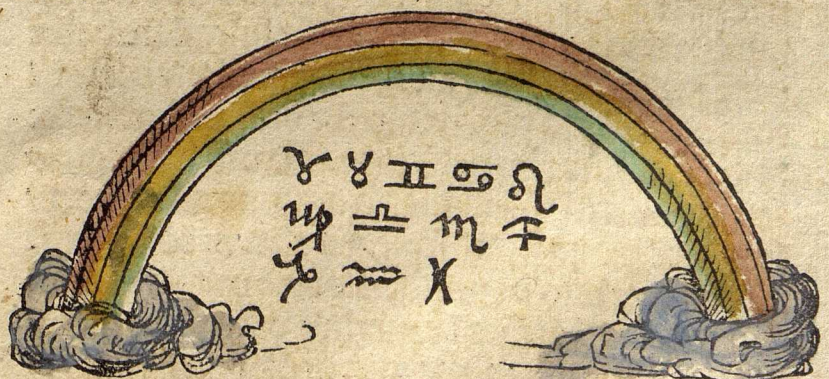 ♈ ♉ ♊ ♋ ♌
♍ ♎ ♏ ♐
♑ ♒ ♓